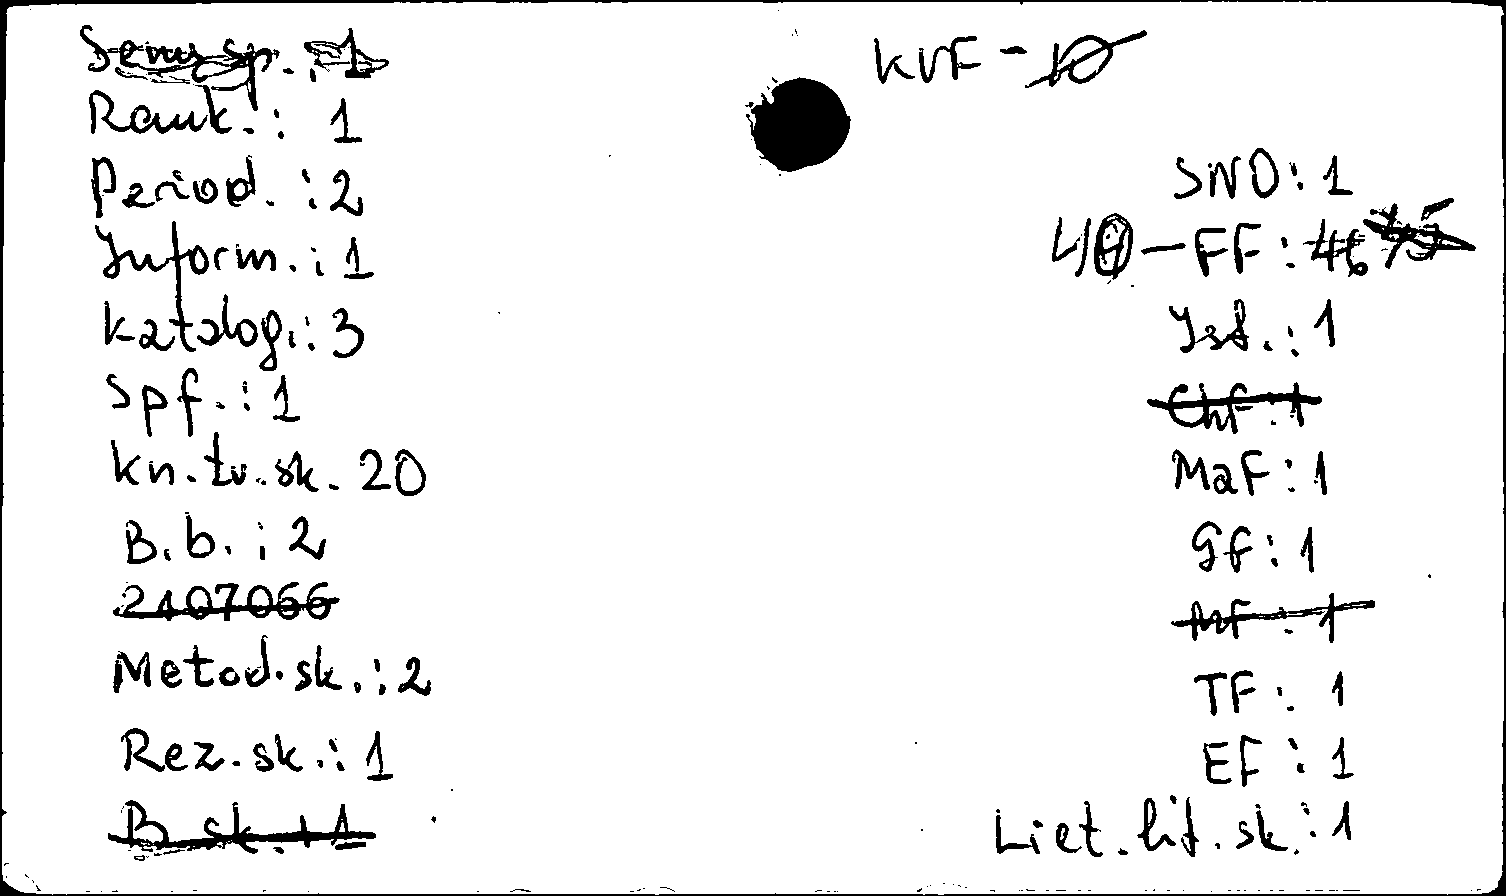 Rank.: 1
Period.: 2
Inform.: 1
Katalog.: 3
Spf.: 1
Kn. tv. sk. 20
B. b.: 2
2107066
Metod. sk.: 2
Rez. sk.: 1
B. sk.: 1
KVF - 10
SNO: 1
FF: 46
Ist.: 1
ChF: 1
MaF: 1
GF: 1
MF: 1
TF: 1
EF: 1
Liet. lit. sk.: 1